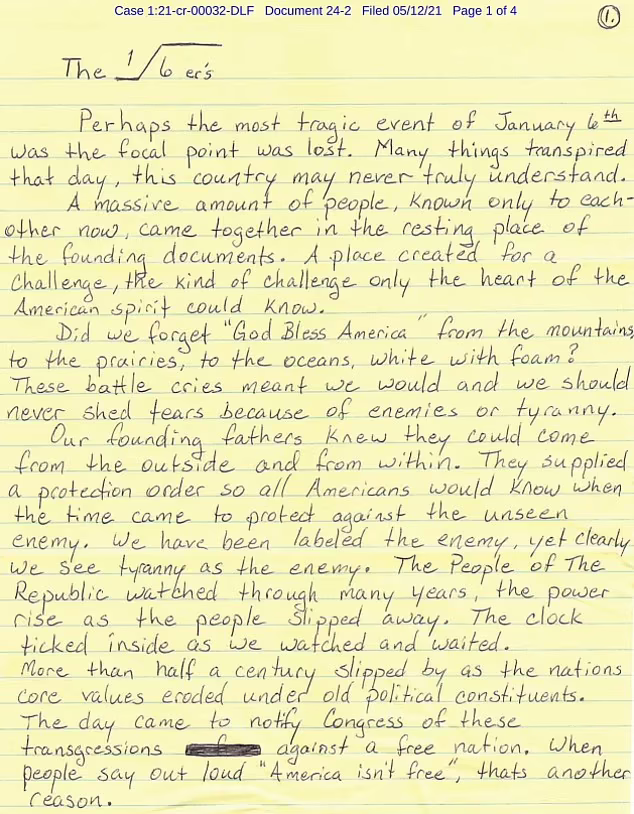 Case 1:21-cr-00032-DLF Document 24-2 Filed 05/12/21 Page 1 of 4
1.
The 1/6 er's
Perhaps the most tragic event of January 6th
was the focal point was lost. Many things transpired
that day, this country may never truly understand.
A massive amount of people, known only to each-
other now, came together in the resting place of
the founding documents. A place created for a
challenge, the kind of challenge only the heart of the
American spirit could know.
Did we forget "God Bless America" from the mountains,
to the prairies, to the oceans, white with foam?
These battle cries meant we would and we should
never shed tears because of enemies or tyranny.
Our founding fathers knew they could come
from the outside and from within. They supplied
a protection order so all Americans would know when
the time came to protect against the unseen
enemy. We have been labeled the enemy, yet clearly
we see tyranny as the enemy. The People of The
Republic watched through many years, the power
rise as the people slipped away. The clock
ticked inside as we watched and waited.
More than half a century slipped by as the nations
core values eroded under old political constituents.
The day came to notify Congress of these
transgressions against a free nation. When
people say out loud "America isn't free", thats another
reason.